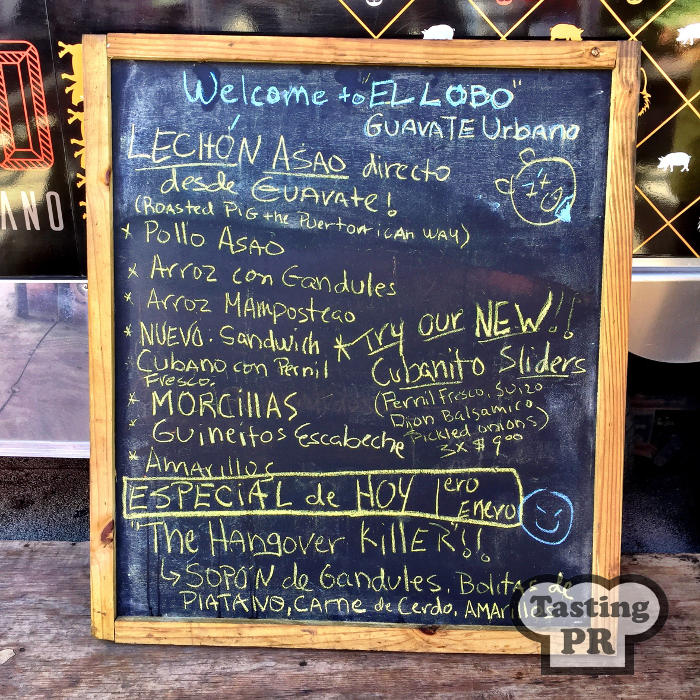 Welcome to "EL LOBO"
GUAVATE Urbano
LECHÓN ASAO directo
desde GUAVATE!
(Roasted Pig the Puertorrican WAY)
* Pollo ASAO
* Arroz con Gandules
* Arroz MAmposteao
* NUEVO. Sandwich
Cubano con Pernil
Fresco.
* MORCillAS
* Guineitos Escabeche
* Amarillos
* Try our NEW!!
Cubanito Sliders
(Pernil Fresco, Suizo
Dijon Balsamico
Pickled onions)
3X $9.00
ESPECIAL de HOY 1ero
Enero
"The Hangover KillER"!!
↳ SOPÓN de Gandules, Bolitas de
PlATANO, Carne de Cerdo,
ANO
Tasting
PR